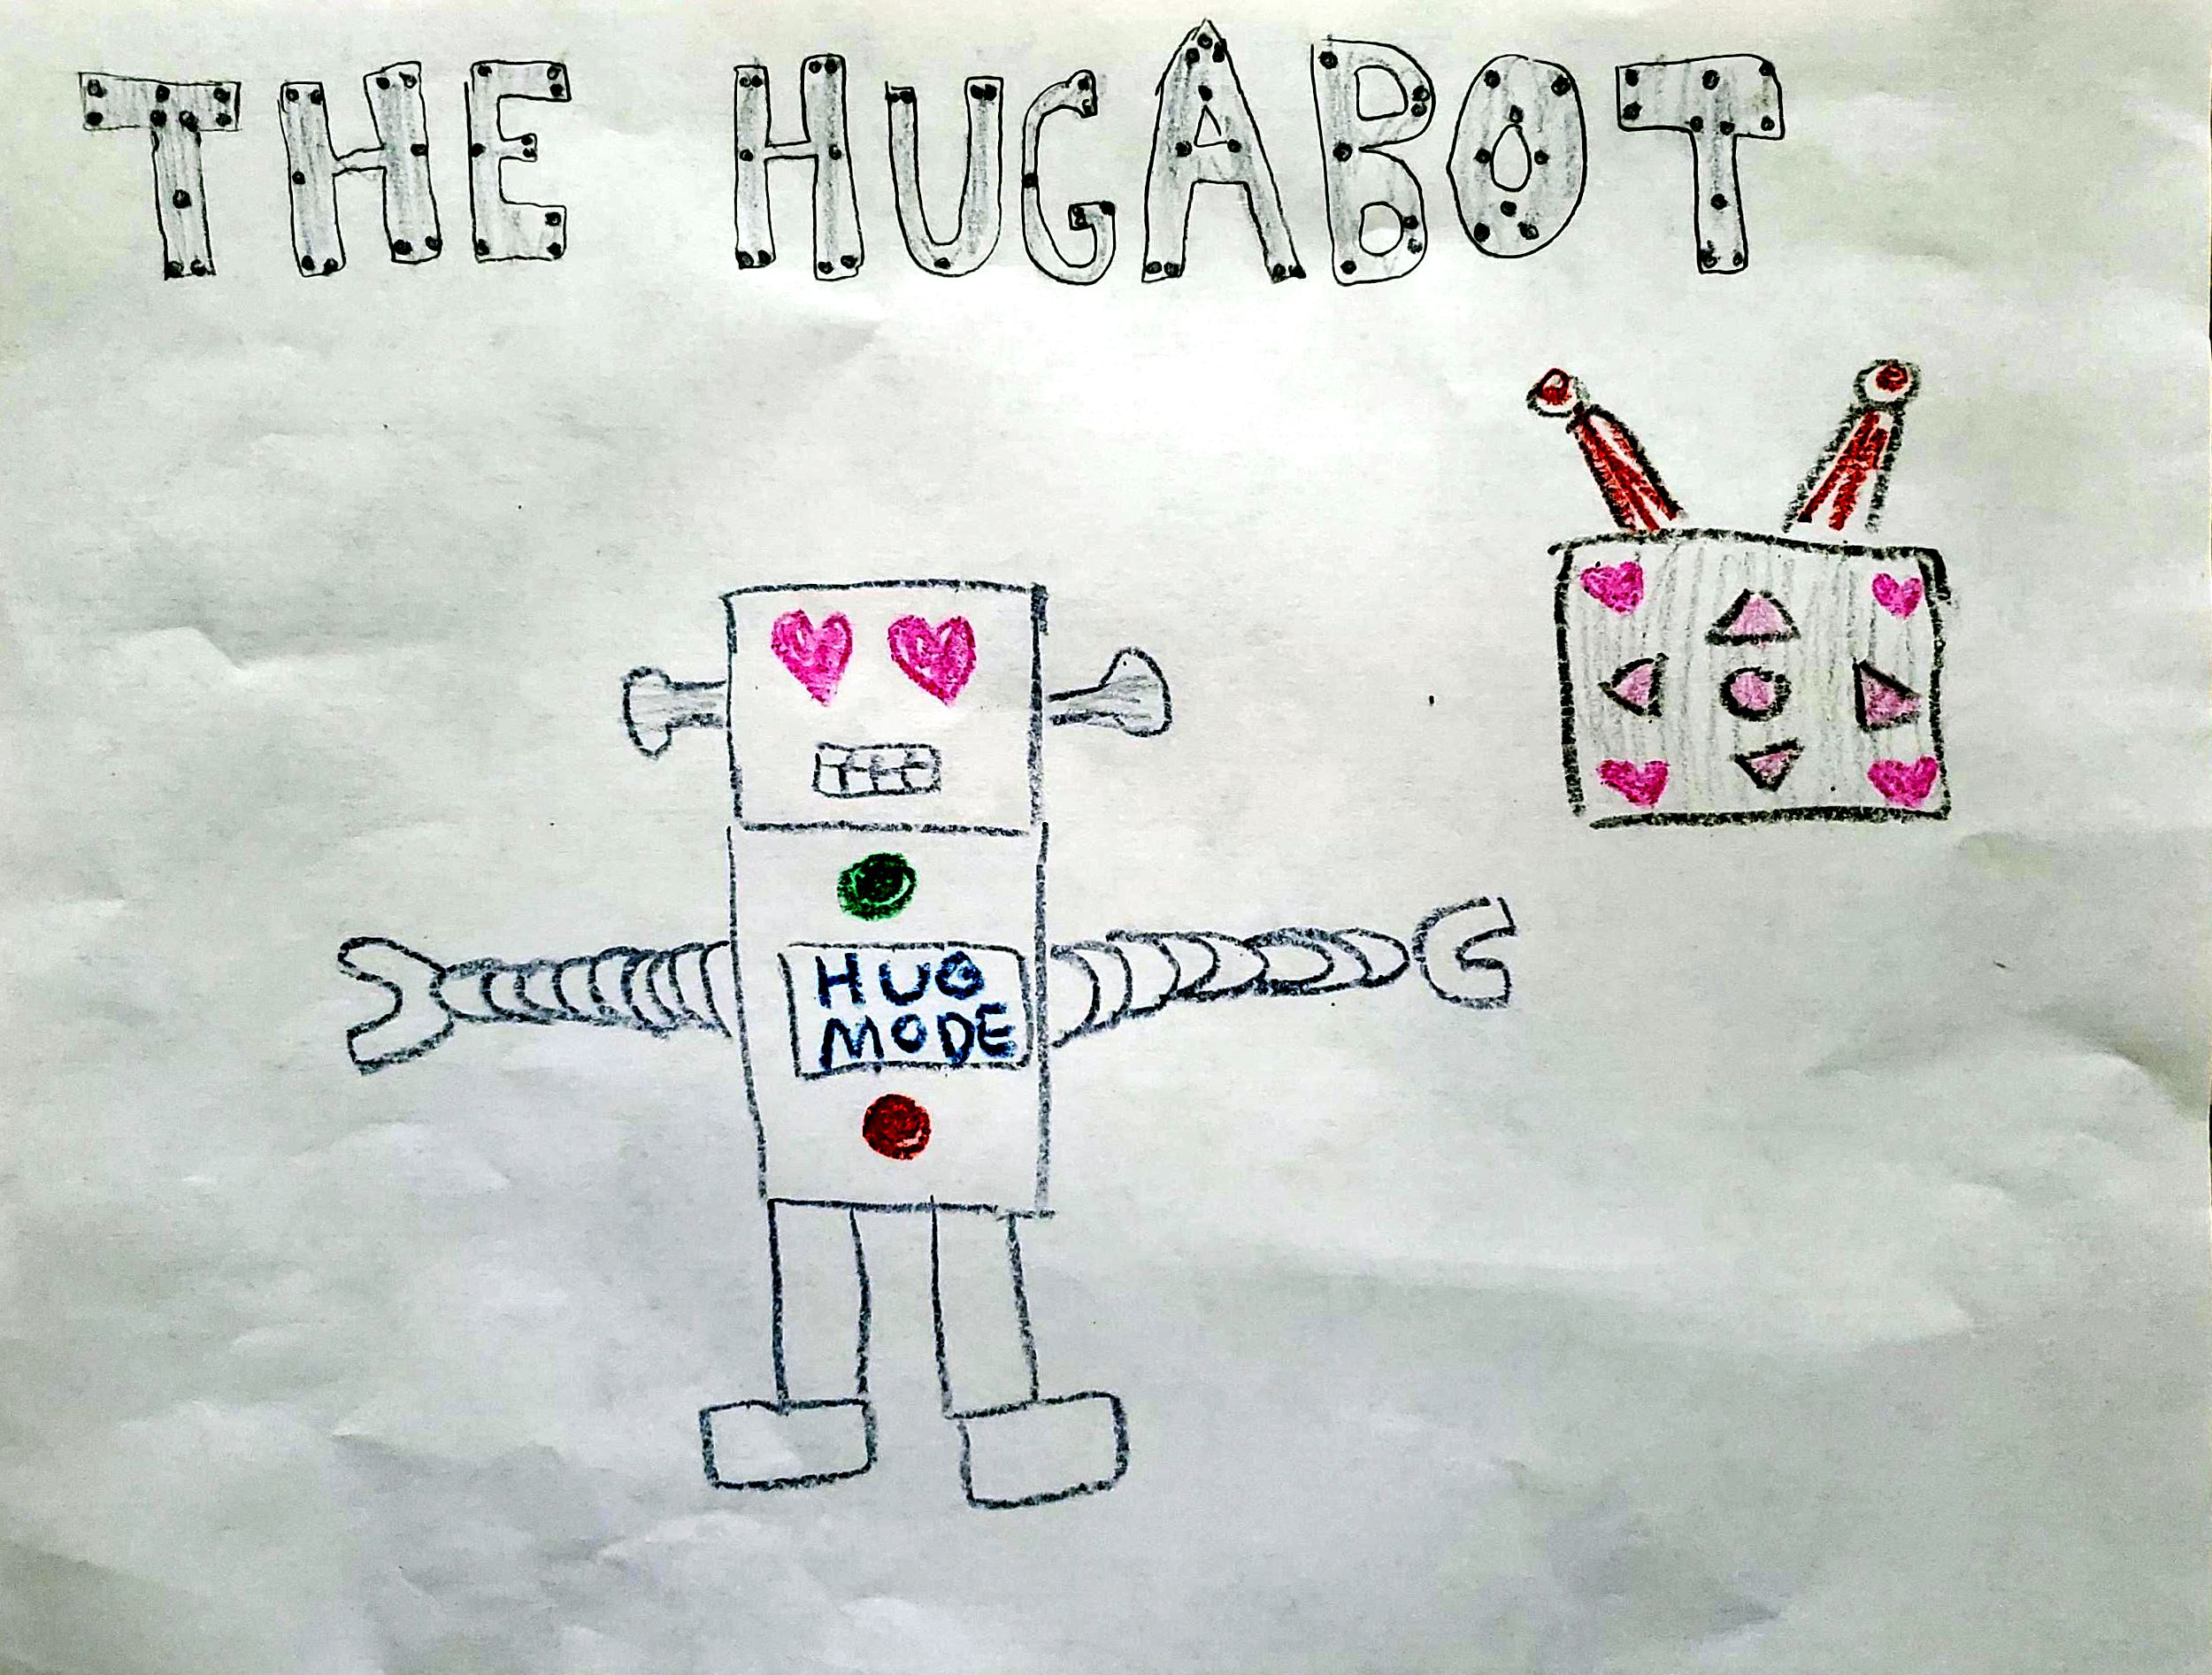 THE HUGABOT
HUG
MODE